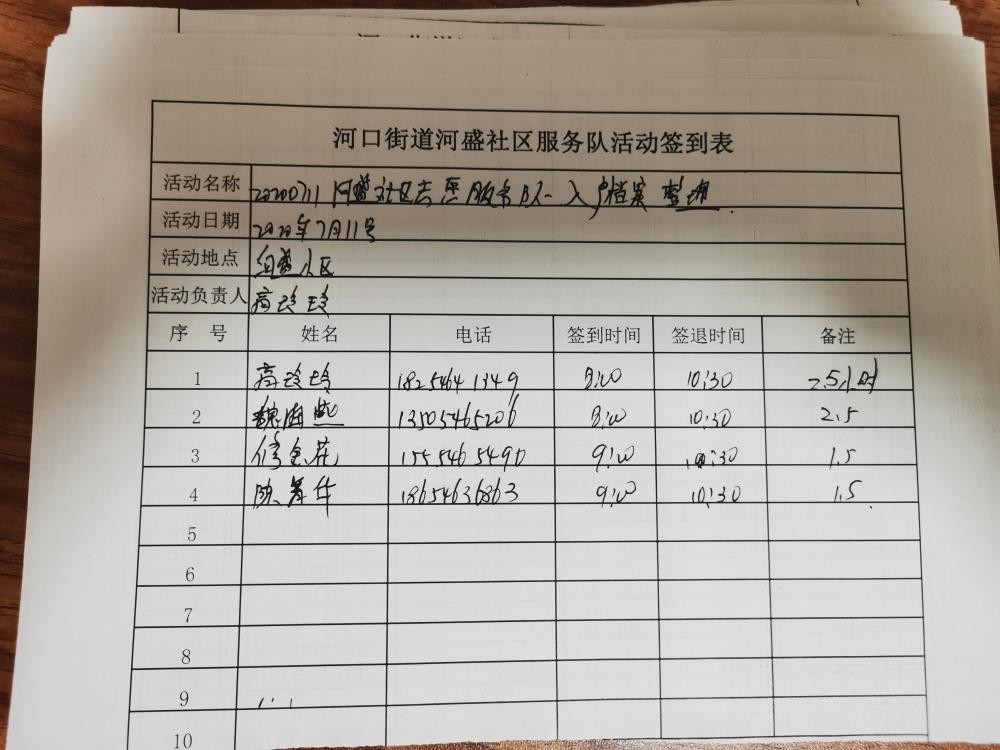 河口街道河盛社区服务队活动签到表
活动名称 20200711 河盛社区志愿服务队-入户档案整理
活动日期 2020年7月11号
活动地点 河盛小区
活动负责人 高玲玲
序 号 姓名 电话 签到时间 签退时间 备注
1 高玲玲 18254641349 8:00 10:30 2.5小时
2 魏海燕 13505465206 8:00 10:30 2.5
3 修金花 15554655490 9:00 10:30 1.5
4 陈 华 18654636863 9:00 10:30 1.5
5
6
7
8
9
10